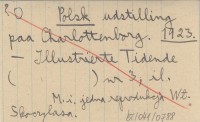 Polsk udstilling
paa Charlottenborg. 1923.
– Illustreret Tidende
( ) nr 3, il.
M.i. jedna reprodukcja Wł.
Skoczylasa.